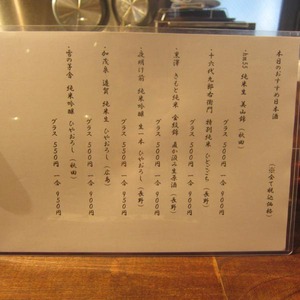 本日のおすすめ日本酒
(※全て税込価格)
・No.55 純米生 美山錦 (秋田)
グラス 500円 一合 900円
・十六代九郎右衛門 特別純米 ひとごこち
グラス 500円 一合 900円
・黒澤 きもと純米 金紋錦 直汲み生原酒 (長野)
グラス 500円 一合 900円
・夜明け前 純米吟醸 生一本 ひやおろし (長野)
グラス 550円 一合 950円
・加茂泉 造賀 純米 ひやおろし (広島)
グラス 500円 一合 900円
・雪の茅舎 純米吟醸 ひやおろし (秋田)
グラス 550円 一合 950円